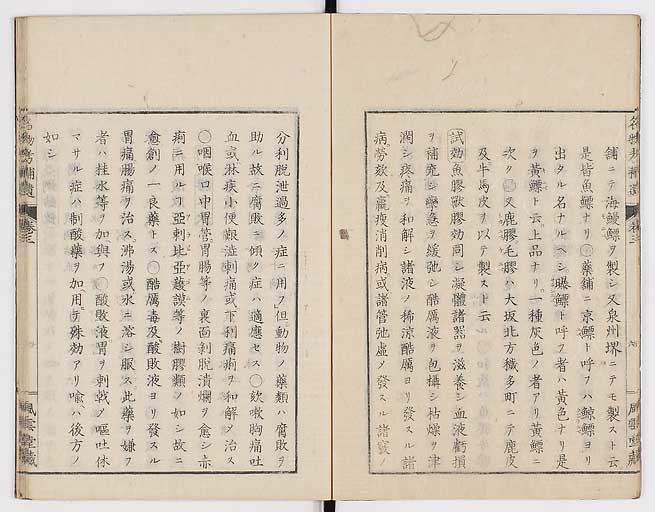 舗ニテ海鰻鰾ヲ製シ又泉州堺ニテモ製スト云
是皆魚鰾ナリ〇藥舗ニ京鰾ト呼フハ鯨鰾ヨリ
出タル名ナルヘシ曝鰾ト呼フ者ハ黄色ナリ是
ヲ黄鰾ト云上品ナリ一種灰色ノ者アリ黄鰾ニ
次ク〇又鹿膠毛膠ハ大坂北方穢多町ニテ鹿皮
及牛馬皮ヲ以テ製スト云
試効魚膠獸膠効同シ凝體諸器ヲ滋養シ血液虧損
ヲ補充シ攣急ヲ緩弛シ酷厲液ヲ包攝シ枯燥ヲ津
潤シ疼痛ヲ和解シ諸液ノ稀涼酷厲ヨリ發スル諸
病勞欬及羸瘦消削病或諸管弛虛ノ發スル諸竅ノ
分利脱泄過多ノ症ニ用フ但動物ノ藥類ハ腐敗ヲ
助ル故ニ腐敗ニ傾ク症ハ適應セス〇欬嗽胸痛吐
血或淋疾小便艱澁刺痛或下利痛痢ヲ和解メ治ス
〇咽喉口中胃管胃腸等ノ裏面剥脱潰爛ヲ愈シ赤
痢ニ用ルヿ亞剌比亞護謨等ノ樹膠類ノ如シ故ニ
愈創ノ一良藥トス〇酷厲毒及酸敗液ヨリ發スル
胃痛腸痛ヲ治ス沸湯或水ニ溶シ服ス此藥ヲ嫌フ
者ハ桂水等ヲ加與フ〇酸敗液胃ヲ刺戟メ嘔吐休
マサル症ハ制酸藥ヲ加用メ殊効アリ喩ハ後方ノ
如シ
名物考補遺
卷三
風雲堂藏